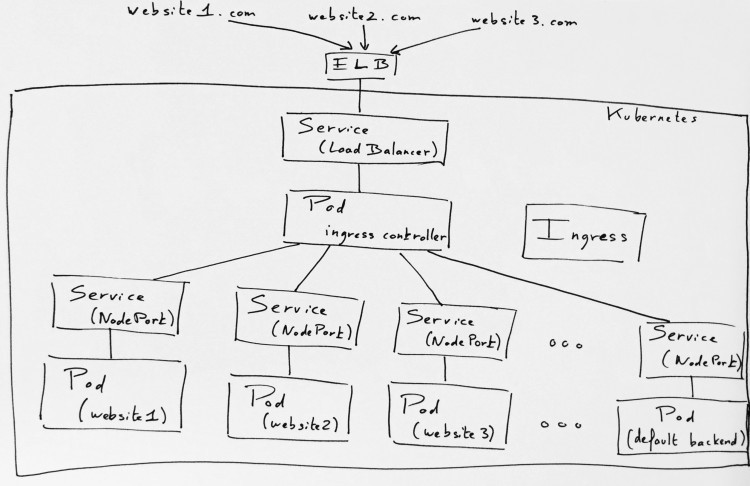 website1.com
website2.com
website3.com
ELB
Kubernetes
Service
(Load Balancer)
Pod
ingress controller
Ingress
Service
(NodePort)
Service
(NodePort)
Service
(NodePort)
ooo
Service
(NodePort)
Pod
(website1)
Pod
(website2)
Pod
(website3)
ooo
Pod
(default backend)